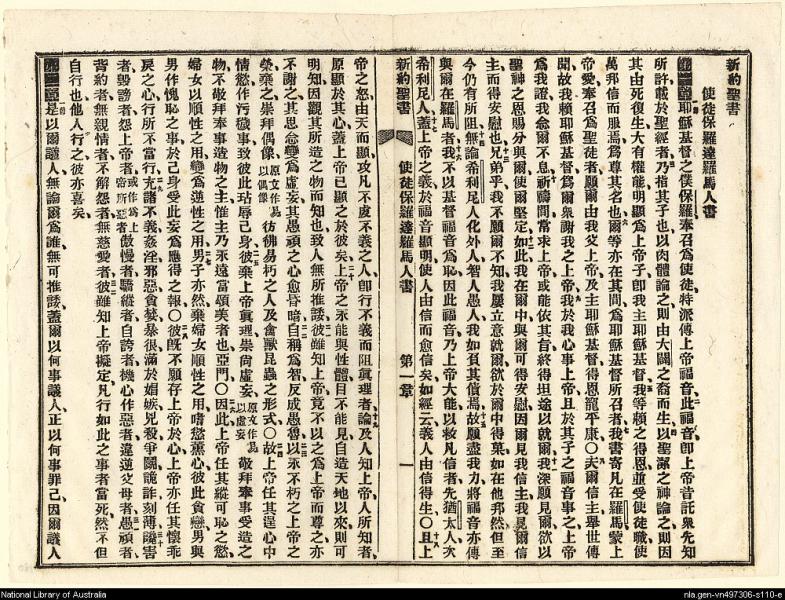 新約聖書
使徒保羅達羅馬人書
耶穌基督之僕保羅奉召為使徒特派傳上帝福音此福音卽上帝昔託衆先知
所許載於聖經者乃指其子也以肉體論之則由大闢之裔而生以聖潔之神論之則因
其由死復生大有權能明顯為上帝子卽我主耶穌基督我等賴之得恩並受使徒職使
萬邦信而服焉為尊其名也爾等亦在其間為耶穌基督所召者我書寄凡在羅馬蒙上
帝愛奉召為聖徒者願爾由我父上帝及主耶穌基督得恩寵平康〇夫爾信主舉世傳
聞故我賴耶穌基督為爾衆謝我之上帝我於我心事上帝且於其子之福音事之上帝
為我證我念爾不息祈禱間常求上帝或能依其旨終得坦途以就爾我深願見爾欲以
聖神之恩賜分與爾使爾堅定如此我在爾中與爾可得安慰因爾見我信主我見爾信
主而得安慰也兄弟乎我不願爾不知我屢立意就爾欲於爾中得菓如在他邦然但至
今仍有所阻無論希利尼人化外人智人愚人我如負其債焉故願盡我力將福音亦傳
與爾在羅馬者我不以基督福音為恥因此福音乃上帝大能以救凡信者先猶太人次
希利尼人蓋上帝之義於福音顯明使人由信而愈信矣如經云義人由信得生〇且上
新約聖書
使徒保羅達羅馬人書
第一章
一
帝之怒由天而顯攻凡不虔不義之人卽行不義而阻眞理者論及人知上帝人所知者
原顯於其心蓋上帝已顯之於彼矣上帝之永能與性體目不能見自造天地以來則可
明知因觀其所造之物而知也致人無所推諉彼雖知上帝竟不以之為上帝而尊之亦
不謝之其思念變為虛妄其愚頑之心愈昏暗自稱為智反成愚魯以永不朽之上帝之
榮棄之崇拜偶像原文作易以偶像彷彿易朽之人及禽獸昆蟲之形式〇故上帝任其逞心中
情慾作污穢事致彼此玷辱己身彼棄上帝眞理崇尚虛妄原文作易以虛妄敬拜奉事受造之
物不敬拜奉事造物之主惟主乃永遠當頌美者也亞門〇因此上帝任其縱可恥之慾
婦女以順性之用變為逆性之用男子亦然棄婦女順性之用嗜慾薰心彼此貪戀男與
男作愧恥之事於己身受此妄為應得之報〇彼旣不願存上帝於心上帝亦任其懷乖
戾之心行所不當行充諸不義姦淫邪惡貪婪暴很滿於媢嫉兇殺爭鬭詭詐刻薄讒害
者毀謗者怨上帝者或作為上帝所惡者傲慢者驕縱者自誇者機心作惡者違逆父母者愚頑者
背約者無親情者不解怨者無慈愛者彼雖知上帝擬定凡行如此之事者當死然不但
自行也他人行之彼亦喜矣
是以爾議人無論爾為誰無可推諉蓋爾以何事議人正以何事罪己因爾議人
National Library of Australia
nla.gen-vn497306-s110-e